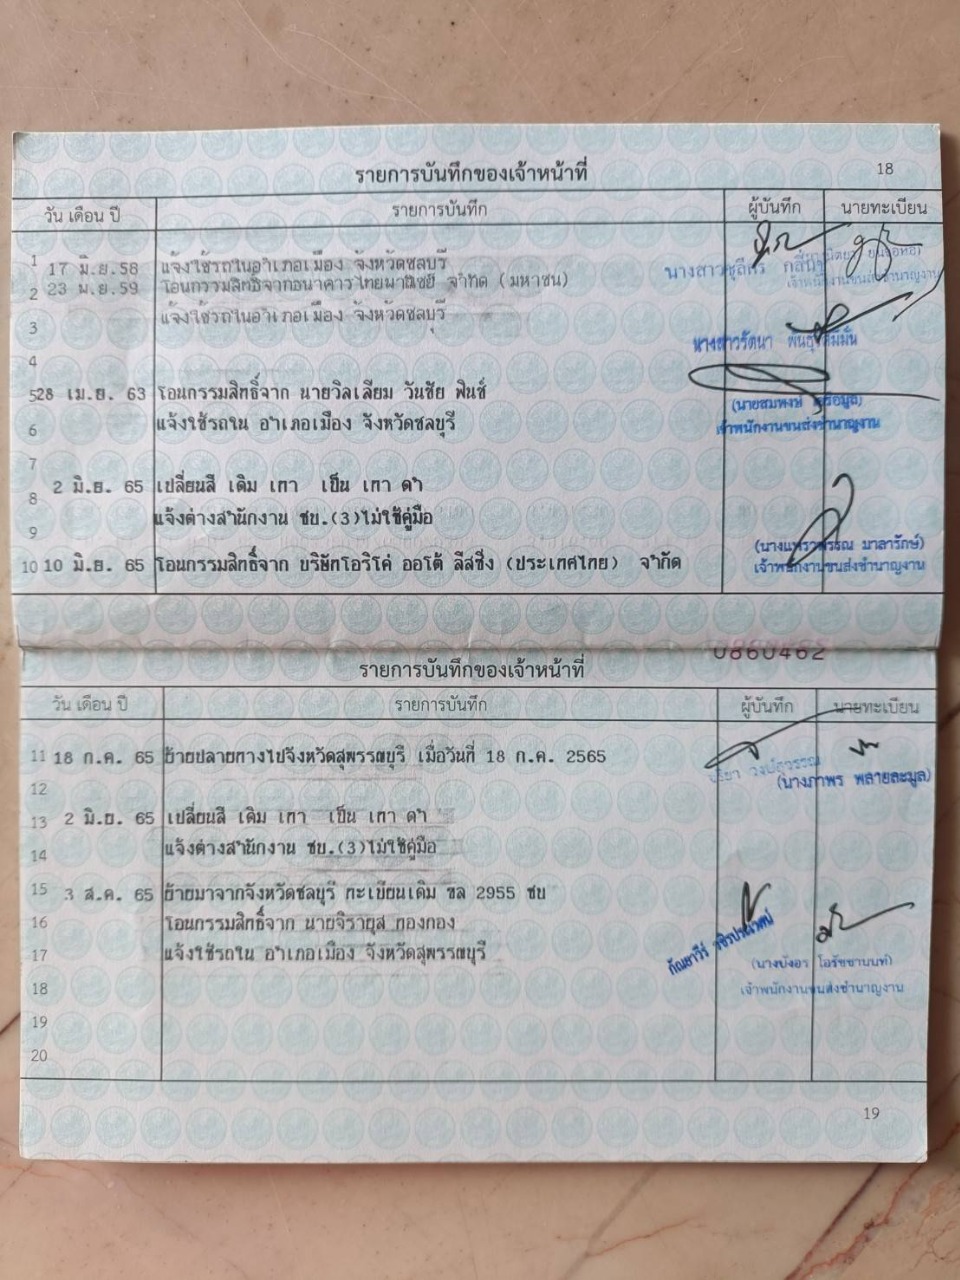 รายการบันทึกของเจ้าหน้าที่
18
วัน เดือน ปี
รายการบันทึก
ผู้บันทึก
นายทะเบียน
1 17 มิ.ย.58 แจ้งใช้รถในอำเภอเมือง จังหวัดชลบุรี
2 23 พ.ย.59 โอนกรรมสิทธิ์จากธนาคารไทยพาณิชย์ จำกัด (มหาชน)
3 แจ้งใช้รถในอำเภอเมือง จังหวัดชลบุรี
นางสาวรัตนา
4
5 28 เม.ย. 63 โอนกรรมสิทธิ์จาก นายวิลเลียม วันชัย ฟินช์
(นายสมพงษ์
6 แจ้งใช้รถใน อำเภอเมือง จังหวัดชลบุรี
เจ้าพนักงานขนส่งชำนาญงาน
7
8 2 มิ.ย. 65 เปลี่ยนสี เดิม เทา เป็น เทา ดำ
9 แจ้งต่างสำนักงาน ชบ.(3)ไม่ใช้คู่มือ
มาลารักษ์)
10 10 มิ.ย. 65 โอนกรรมสิทธิ์จาก บริษัทโอริโค่ ออโต้ ลีสซิ่ง (ประเทศไทย) จำกัด
เจ้าพนักงานขนส่งชำนาญงาน
0860462
รายการบันทึกของเจ้าหน้าที่
วัน เดือน ปี
รายการบันทึก
ผู้บันทึก
นายทะเบียน
11 18 ก.ค. 65 ย้ายปลายทางไปจังหวัดสุพรรณบุรี เมื่อวันที่ 18 ก.ค. 2565
(นางภาพร พลายละมูล)
12
13 2 มิ.ย. 65 เปลี่ยนสี เดิม เทา เป็น เทา ดำ
14 แจ้งต่างสำนักงาน ชบ.(3)ไม่ใช้คู่มือ
15 3 ส.ค. 65 ย้ายมาจากจังหวัดชลบุรี ทะเบียนเดิม ขล 2955 ชบ
16 โอนกรรมสิทธิ์จาก นายจิรายุส ทองกอง
17 แจ้งใช้รถใน อำเภอเมือง จังหวัดสุพรรณบุรี
(นางบังอร โอรัชชานนท์)
18
เจ้าพนักงานขนส่งชำนาญงาน
19
20
19